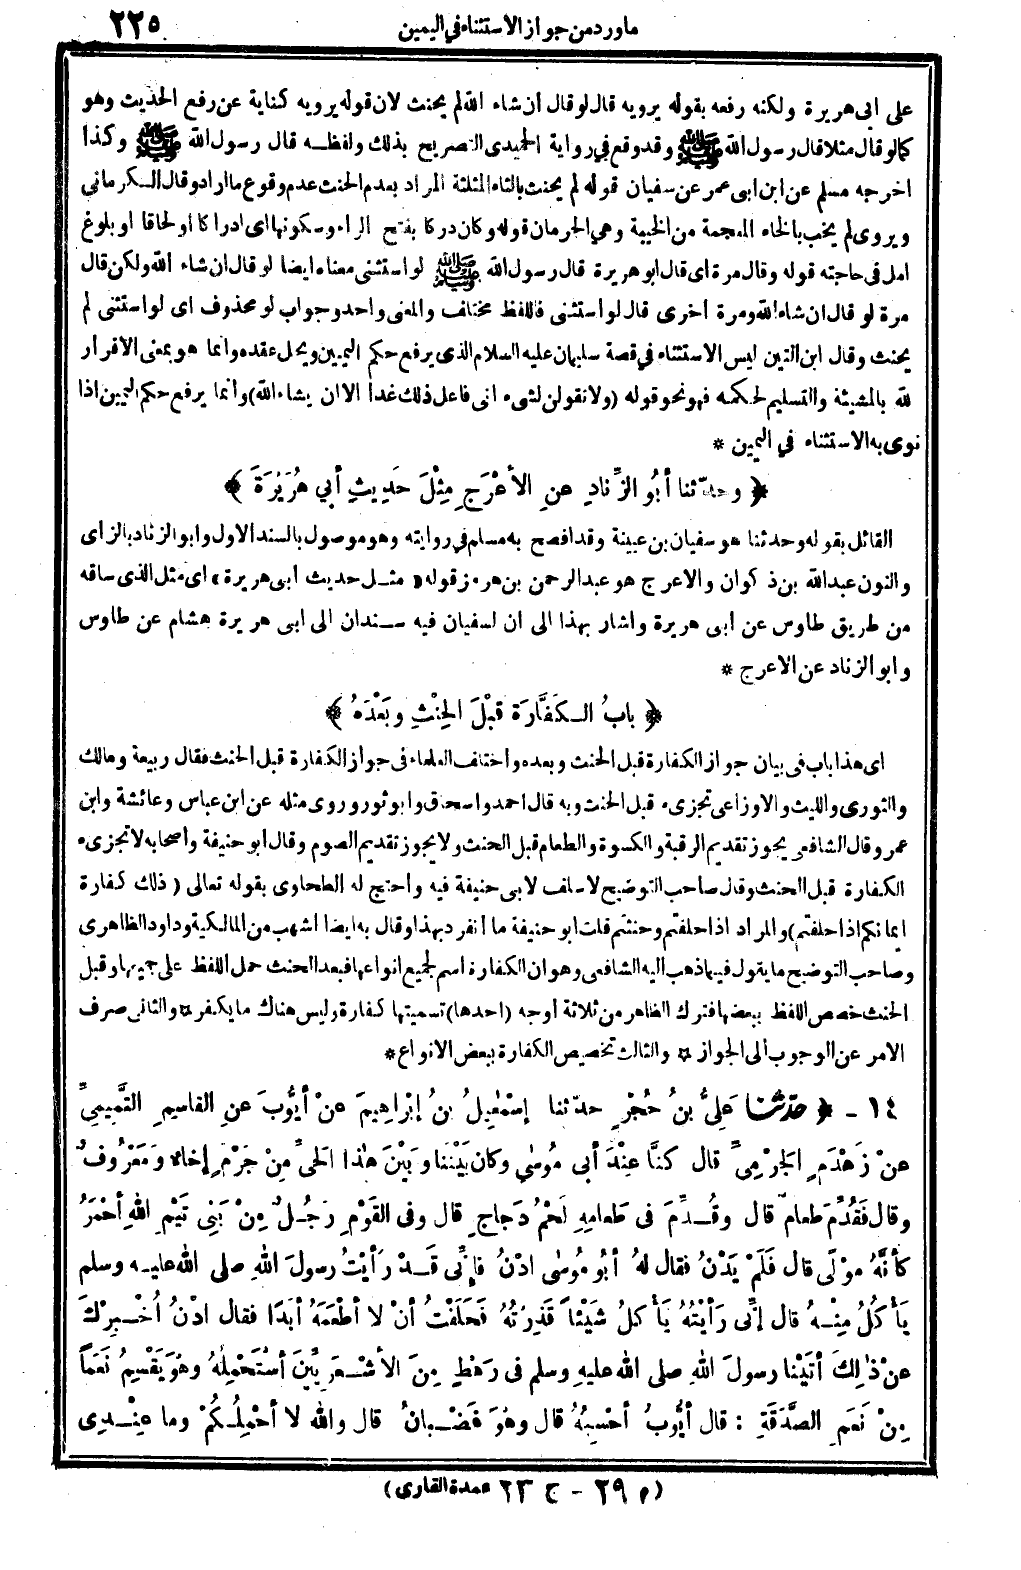 ماورد من جواز الاستثناء في اليمين ٢٢٥
على ابى هريرة ولكنه رفعه بقوله يرويه قال لو قال ان شاء الله لم يحنث لان قوله يرويه كناية عن رفع الحديث وهو
كما لو قال مثلا قال رسول الله ﷺ وقد وقع في رواية الحميدى التصريح بذلك ولفظه قال رسول الله ﷺ وكذا
اخرجه مسلم عن ابن ابى عمر عن سفيان قوله لم يحنث بالثاء المثلثة المراد بعدم الحنث عدم وقوع ما اراد وقال الكرماني
ويروى لم يخب بالخاء المعجمة من الخيبة وهي الحرمان قوله وكان دركا بفتح الراء وسكونها اى ادراكا او لحاقا او بلوغ
امل في حاجته قوله وقال مرة اى قال ابو هريرة قال رسول الله ﷺ لو استثنى معناه ايضا لو قال ان شاء الله ولكن قال
مرة لو قال ان شاء الله ومرة اخرى قال لو استثنى فاللفظ مختلف والمعنى واحد وجواب لو محذوف اى لو استثنى لم
يحنث وقال ابن التين ليس الاستثناء في قصة سليمان عليه السلام الذى يرفع حكم اليمين ويحل عقده وانما هو بمعنى الاقرار
لله بالمشيئة والتسليم لحكمه فهو نحو قوله (ولا تقولن لشىء انى فاعل ذلك غدا الا ان يشاء الله) وانما يرفع حكم اليمين اذا
نوى به الاستثناء في اليمين *
﴿ وحدّثنا أبُو الزِّنادِ عنِ الأعْرَجِ مِثْلَ حَدِيثِ أبي هُرَيْرَةَ ﴾
القائل بقوله وحدثنا هو سفيان بن عيينة وقد افصح به مسلم في روايته وهو موصول بالسند الاول وابو الزناد بالزاى
والنون عبد الله بن ذكوان والاعرج هو عبد الرحمن بن هرمز قوله «مثل حديث ابى هريرة» اى مثل الذى ساقه
من طريق طاوس عن ابى هريرة واشار بهذا الى ان لسفيان فيه سندان الى ابى هريرة هشام عن طاوس
وابو الزناد عن الاعرج *
﴿ بابُ الكَفَّارَةِ قَبْلَ الحِنْثِ وبَعْدَهُ ﴾
اى هذا باب فى بيان جواز الكفارة قبل الحنث وبعده واختلف العلماء في جواز الكفارة قبل الحنث فقال ربيعة ومالك
والثورى والليث والاوزاعى تجزىء قبل الحنث وبه قال احمد واسحاق وابو ثور وروى مثله عن ابن عباس وعائشة وابن
عمر وقال الشافعى يجوز تقديم الرقبة والكسوة والطعام قبل الحنث ولا يجوز تقديم الصوم وقال ابو حنيفة وأصحابه لا تجزىء
الكفارة قبل الحنث وقال صاحب التوضيح لا سلف لابى حنيفة فيه واحتج له الطحاوى بقوله تعالى (ذلك كفارة
ايمانكم اذا حلفتم) والمراد اذا حلفتم وحنثتم قلت ابو حنيفة ما انفرد بهذا وقال به ايضا اشهب من المالكية وداود الظاهرى
وصاحب التوضيح ما يقول فيما ذهب اليه الشافعى وهو ان الكفارة اسم لجميع انواعها فبعد الحنث حمل اللفظ على جميعها وقبل
الحنث خصص اللفظ ببعضها فترك الظاهر من ثلاثة أوجه (احدها) تسميتها كفارة وليس هناك ما يكفر * والثانى صرف
الامر عن الوجوب الى الجواز * والثالث تخصيص الكفارة ببعض الانواع *
١٤ - ﴿ حدّثنا عَلِيُّ بنُ حُجْرٍ حدّثنا إسْمَعِيلُ بنُ إبْرَاهِيمَ عَنْ أيُّوبَ عنِ القاسِمِ التَّمِيمِيِّ
عنْ زَهْدَمٍ الجَرْمِيِّ قال كُنَّا عِنْدَ أبي مُوسَى وكان بَيْنَنا وبَيْنَ هٰذا الحَيِّ مِنْ جَرْمٍ إخاءٌ ومَعْرُوفٌ
وقال فَقُدِّمَ طَعامٌ قال وقُدِّمَ فى طَعامِهِ لَحْمُ دَجاجٍ قال وفى القَوْمِ رَجُلٌ مِنْ بَنِى تَيْمِ اللهِ أحْمَرُ
كأنَّهُ مَوْلًى قال فَلَمْ يَدْنُ فقال لهُ أبُو مُوسٰى ادْنُ فإنِّى قَدْ رَأيْتُ رسولَ اللهِ صلى الله عليه وسلم
يَأكُلُ مِنْهُ قال إنِّى رَأيْتُهُ يَأكلُ شَيْئاً قَذِرْتُهُ فَحَلَفْتُ أنْ لا أطْعَمَهُ أبَدًا فقال ادْنُ أُخْبِرْكَ
عنْ ذٰلِكَ أتَيْنا رسولَ اللهِ صلى الله عليه وسلم فى رَهْطٍ مِنَ الأشْعَرِيِّينَ أسْتَحْمِلُهُ وهُوَ يَقْسِمُ نَعَماً
مِنْ نَعَمِ الصَّدَقَةِ : قال أيُّوبُ أحْسِبُهُ قال وهُوَ غَضْبانُ قال واللهِ لا أحْمِلُكُمْ وما عِنْدِى
(م ٢٩ - ج ٢٣ عمدة القارى)